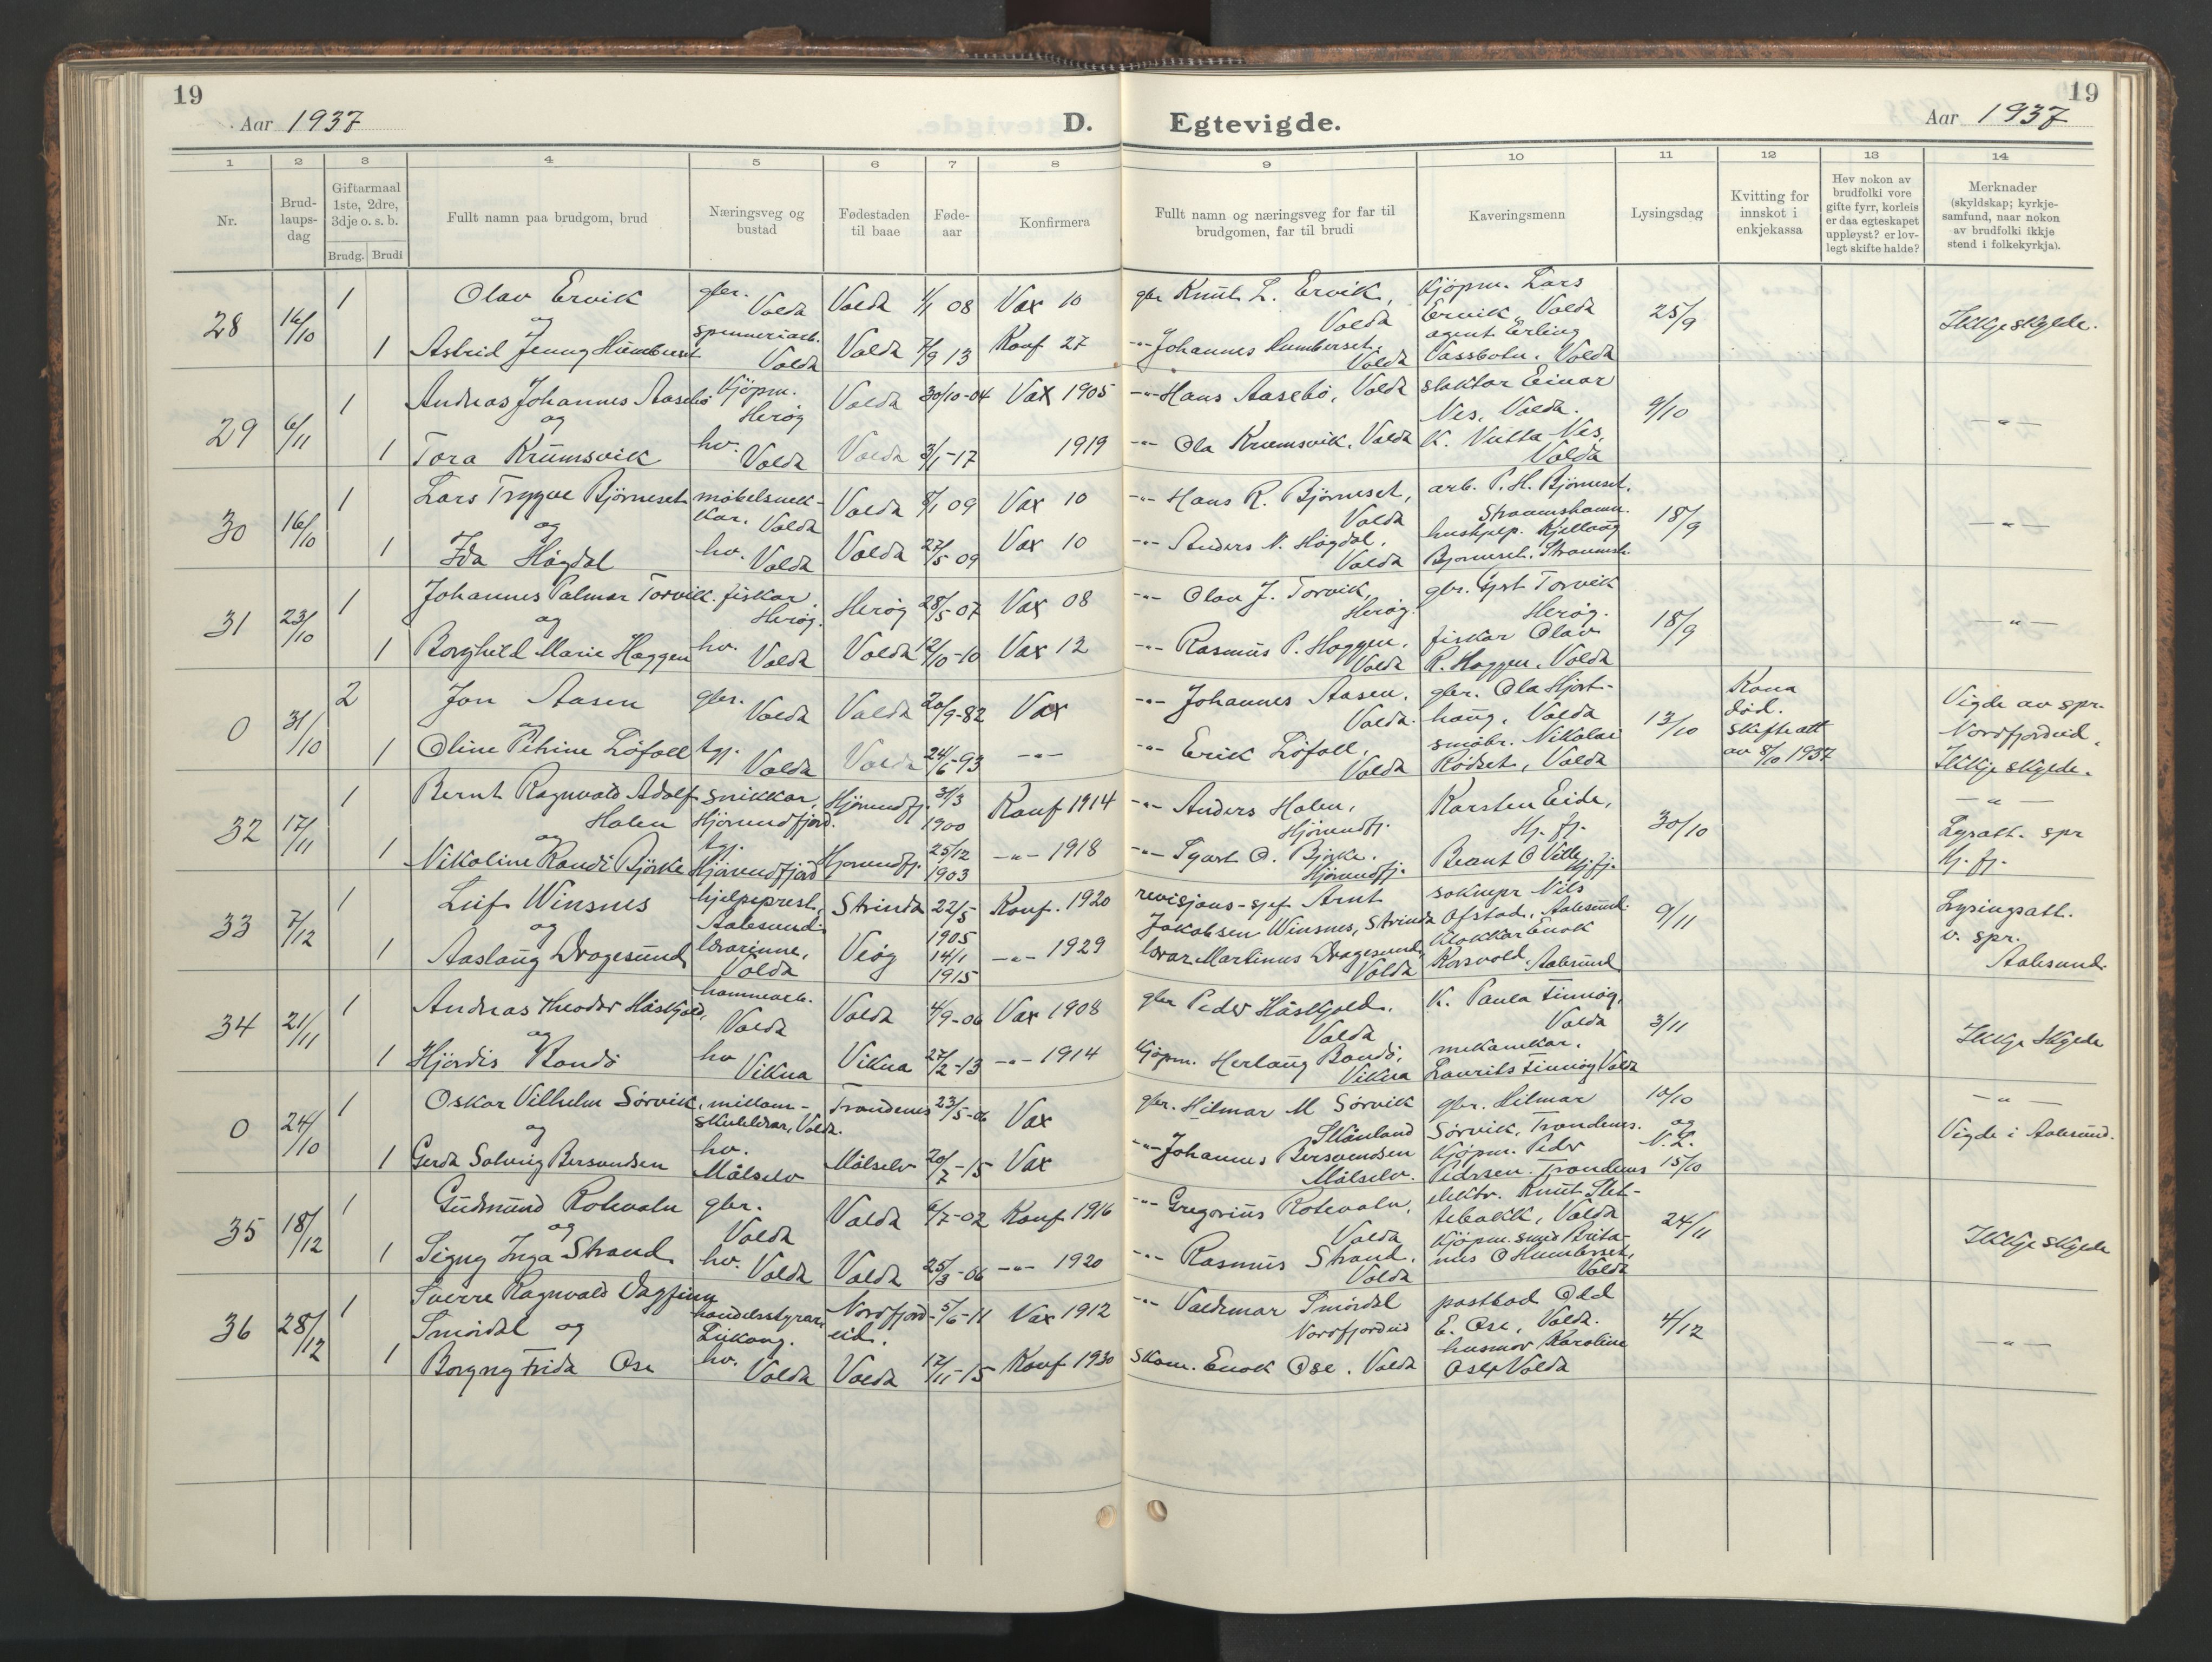 19
Aar 1937
D.
Egtevigde.
Aar 1937
19
1 2 3 4 5 6 7 8 9 10 11 12 13 14
Nr.
Brud-
laups-
dag
Giftarmaal
1ste, 2dre,
3dje o. s. b.
Brudg. Brudi
Fullt namn paa brudgom, brud
Næringsveg og
bustad
Fødestaden
til baae
Føde-
aar
Konfirmera
Fullt namn og næringsveg for far til
brudgomen, far til brudi
Kaveringsmenn
Lysingsdag
Kvitting for
innskot i
enkjekassa
Hev nokon av
brudfolki vore
gifte fyrr, korleis
er daa egteskapet
uppløyst? er lov-
legt skifte halde?
Merknader
(skyldskap; kyrkje-
samfund, naar nokon
av brudfolki ikkje
stend i folkekyrkja).
28 16/10
1 Olav Ervik gbr. Volda Volda 1/1 08 Vax 10 gbr Knut L. Ervik, Volda
og
1 Astrid Jenny Humberset spinneriarb. Volda Volda 7/9 13 Konf 27 -"- Johannes Humberset. Volda
Kjøpm. Lars
Ervik, Volda
agent Erling
Vassbotn. Volda
25/9
Ikkje skylde.
29 6/11
1 Andreas Johannes Aasebø Kjøpm. Herøy Volda 30/10-04 Vax 1905 -"- Hans Aasebö, Volda
og
1 Tora Krumsvik hv. Volda Volda 3/1-17 1919 -"- Ola Krumsvik, Volda
slaktar Einar
Nes, Volda.
K. Nes,
Volda
9/10
-"-
30 16/10
1 Lars Trygve Bjørneset møbelsnek-
kar. Volda Volda 8/1 09 Vax 10 -"- Hans R. Bjørneset, Volda
og
1 Ida Høgdal hv. Volda Volda 27/5 09 Vax 10 -"- Anders N. Høgdal. Volda
arb. P. H. Bjørneset.
Straumshamn.
hushjelp. Kjellaug
Bjørneset. Straumsh.
18/9
-"-
31 23/10
1 Johannes Palmar Torvik. fiskar. Herøy. Herøy 28/5-07 Vax 08 -"- Olav J. Torvik, Herøy.
og
1 Borghild Marie Haggen hv. Volda Volda 12/10-10 Vax 12 -"- Rasmus P. Haggen. Volda
gbr. Torvik
Herøy.
fiskar Olav
R. Haggen, Volda
18/9
-"-
0 31/10
2 Jon Aasen gbr. Volda Volda 20/9-82 Vax -"- Johannes Aasen. Volda.
og
1 Oline Petrine Löfoll tgj. Volda Volda 24/6-93 -"- -"- Erik Löfoll, Volda
gbr. Ola Hjort-
haug, Volda
småbr. Nikolai
Rødset, Volda
13/10
Kona
död.
skifteatt
av 8/10 1937
Vigde av spr.
Nordfjordeid.
Ikkje skylde.
32 17/11
1 Bernt Ragnvald Adolf
Holen snikkar, Hjørundfjord. Hjørundfj. 31/3 1900 Konf 1914 -"- Anders Holen, Hjørundfj.
og
1 Nikoline Randi Bjørke tgj. Hjørundfjord Hjørundfj. 25/12 1903 -"- 1918 -"- O. Bjørke. Hjørundfj.
Karsten Eide,
Hj. fj.
Bernt O Hj. fj.
30/10
-"-
Lysatt. spr
Hj. fj.
33 7/12
1 Leif Winsnes hjelpeprest, Aalesund. Strinda 22/5 1905 Konf. 1920 revisjons-sjef Arnt
Jakobsen Winsnes, Strinda
og
1 Aaslaug Dragesund lærarinne, Volda Veøy 14/1 1915 -"- 1929 lærar Martinus Dragesund, Volda
soknepr Nils
Ofstad, Aalesund.
Klokkar Enok
Korsvold. Aalesund
9/11
Lysingsatt.
v. spr.
Aalesund.
34 21/11
1 Andreas Theodor Håskjold, hamnearb. Volda Volda 4/9-06 Vax 1908 gbr Peder Håskjold. Volda
og
1 Hjørdis Randö hv Vikna Vikna 27/2-13 -"- 1914 Kjøpm. Herlaug Randö, Vikna
K. Paula Finnøy,
Volda
mekanikar.
Laurits Finnøy Volda
3/11
Ikkje skylde
0 24/10
1 Oskar Vilhelm Sørvik, mellom-
skulelærar, Volda. Trondenes 23/5-06 Vax gbr. Hilmar M Sørvik
Skånland
og
1 Gerda Solveig Bersvendsen hv. Målselv Målselv 20/7-15 Vax -"- Johannes Bersvendsen
Målselv.
gbr. Hilmar
Sørvik, Trondenes.
Kjøpm. Peder
Pedersen. Trondenes
10/10
og
N. L.
15/10
-"-
Vigde i Aalesund.
35 18/12
1 Gudmund Rotevatn gbr. Volda Volda 6/7-02 Konf 1916 -"- Gregorius Rotevatn, Volda
og
1 Signy Inga Strand hv. Volda Volda 25/3-06 -"- 1920 -"- Rasmus Strand. Volda
elektr. Knut Slet-
tebakk, Volda
Kjøpm. smed Brita-
nus O Humberset,
Volda
24/11
Ikkje skylde
36 28/12
1 Sverre Ragnvald Dagfinn
Smördal og handelsstyrar, Liikang. Nordfjord-
eid. 5/6-11 Vax 1912 -"- Valdemar Smördal
Nordfjordeid
1 Borgny Frida Ose hv. Volda Volda 17/11-15 Konf 1930 skom. Enok Ose. Volda
postbod Odd
E. Ose, Volda.
husmor Karoline
Ose, Volda
4/12
-"-